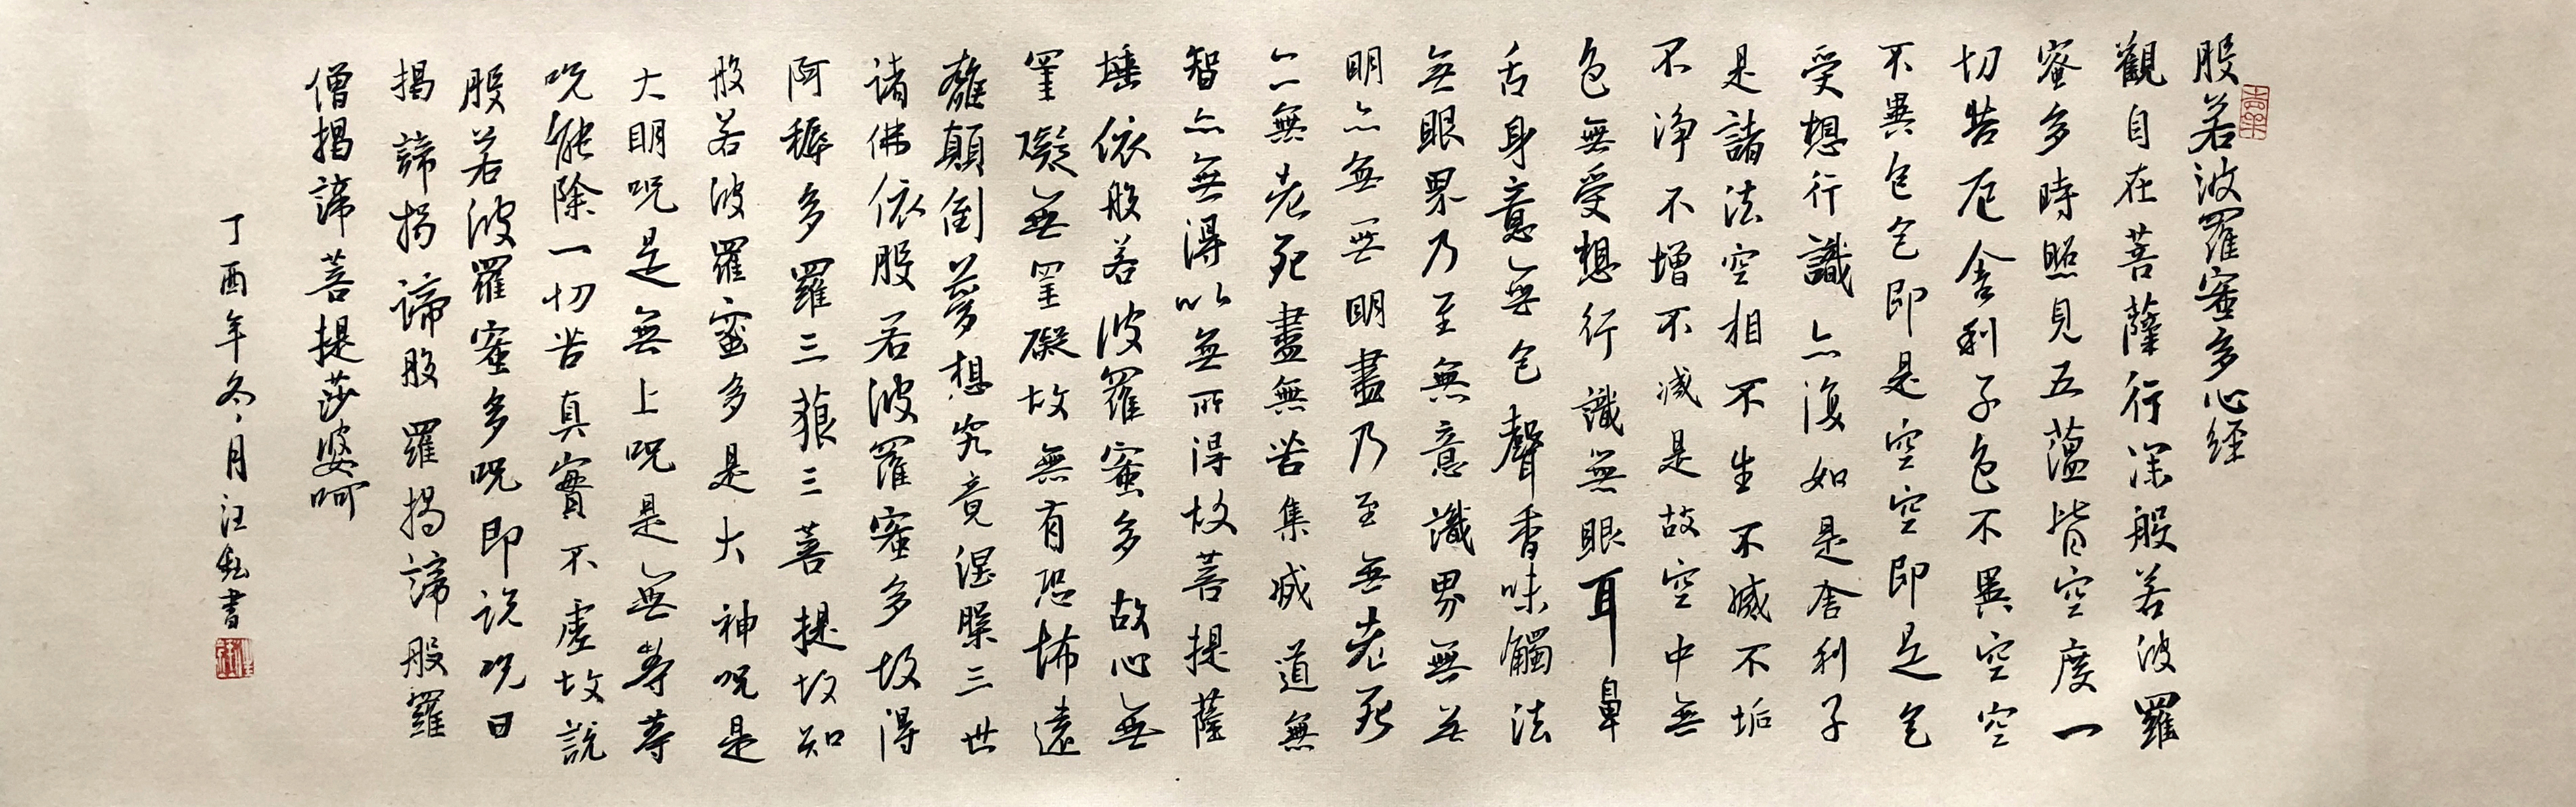 般若波羅蜜多心経
觀自在菩薩行深般若波羅
蜜多時照見五蘊皆空度一
切苦厄舍利子色不異空空
不異色色即是空空即是色
受想行識亦復如是舍利子
是諸法空相不生不滅不垢
不淨不增不減是故空中無
色無受想行識無眼耳鼻
舌身意無色聲香味觸法
無眼界乃至無意識界無無
明亦無無明盡乃至無老死
亦無老死盡無苦集滅道無
智亦無得以無所得故菩提薩
埵依般若波羅蜜多故心無
罣礙無罣礙故無有恐怖遠
離顛倒夢想究竟涅槃三世
諸佛依般若波羅蜜多故得
阿耨多羅三藐三菩提故知
般若波羅蜜多是大神咒是
大明咒是無上咒是無等等
咒能除一切苦真實不虛故說
般若波羅蜜多咒即说咒曰
揭諦揭諦般羅揭諦般羅
僧揭諦菩提莎婆呵
丁酉年冬月汪書